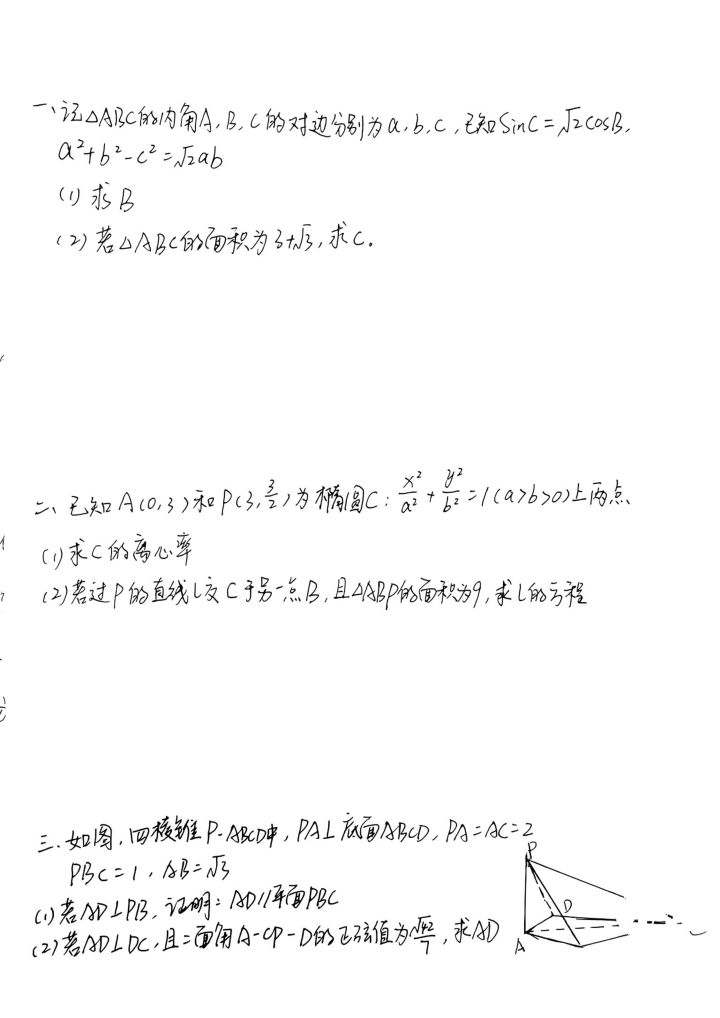 一、记△ABC的内角A、B、C的对边分别为a、b、c,已知SinC=√2cosB,
a²+b²-c²=√2ab
(1) 求B
(2) 若△ABC的面积为3+√3,求C.
二、已知A(0,3)和P(3,3/2)为椭圆C:x²/a²+y²/b²=1(a>b>0)上两点
(1)求C的离心率
(2)若过P的直线L交C于另一点B,且△ABP的面积为9,求L的方程
三、如图,四棱锥P-ABCD中,PA⊥底面ABCD,PA=AC=2
PBC=1,AB=√3
(1)若AD⊥PB,证明:AD//平面PBC
(2)若AD⊥DC,且二面角A-CP-D的正弦值为√42/7,求AD
P
D
A